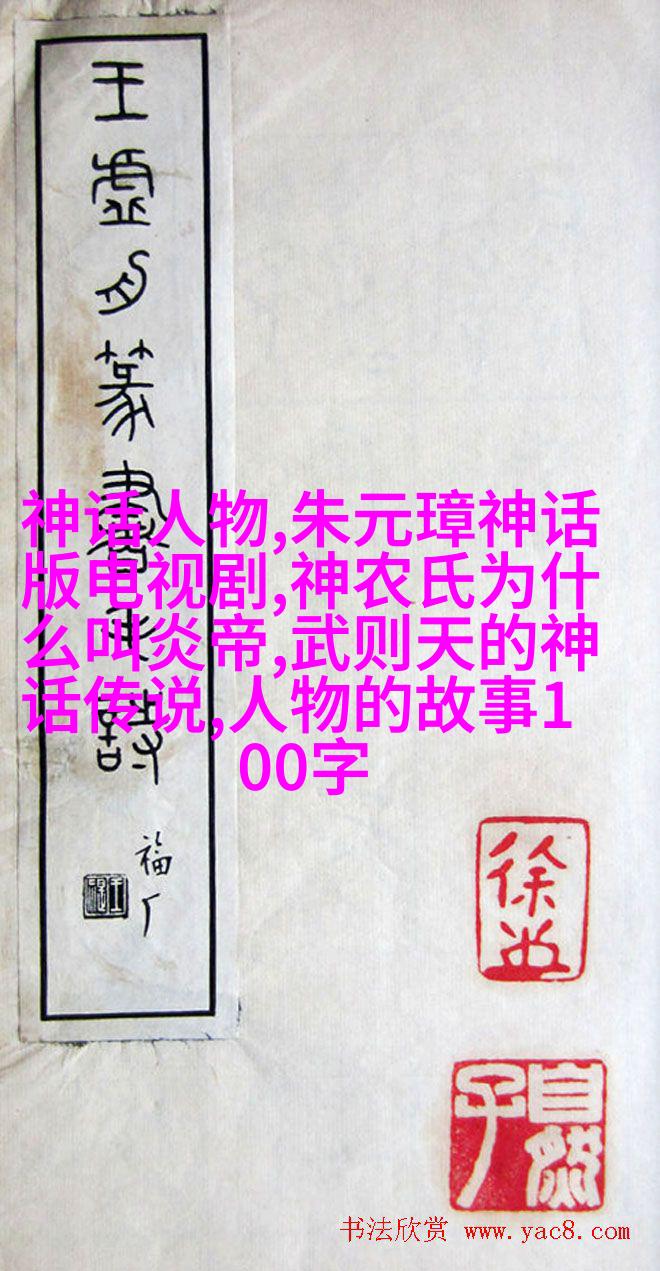 王虛舟篆書詩
福厂
神话人物,朱元璋神话
版电视剧,神农氏为什
么叫炎帝,武则天的神
话传说,人物的故事1
00字
徐
自然子
书法欣赏 www.yac8.com